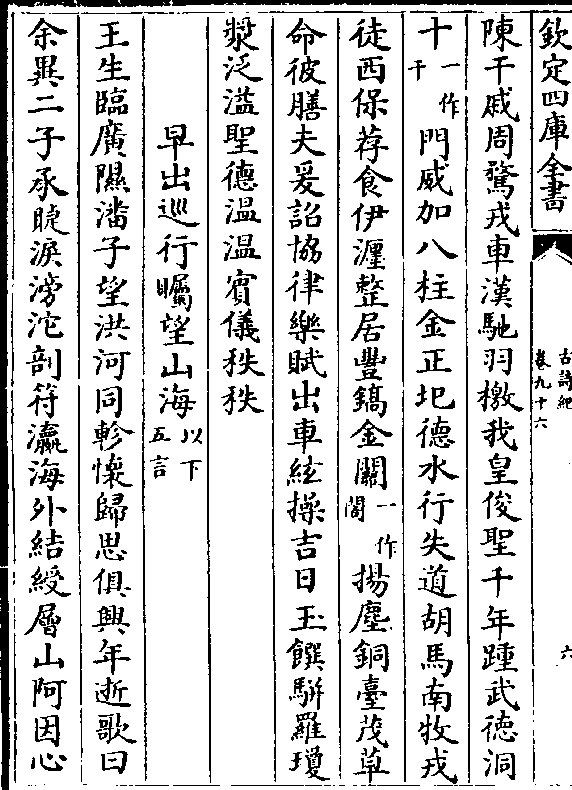 欽定四庫全書
古詩紀
卷九十六
六
陳干戚周驚戎車漢馳羽檄我皇俊聖千年踵武德洞
十一作干門威加八柱金正圯德水行失道胡馬南牧戎
徒西保荐食伊瀍整居豐鎬金關一作閣揚塵銅臺茂草
命彼膳夫爰詔協律樂賦出車絃操吉日玉饌駢羅瓊
漿泛溢聖德温温賓儀秩秩
早出巡行矚望山海以下五言
王生臨廣隰潘子望洪河同軫懷歸思俱興年逝歌曰
余異二子承睫淚滂沱剖符瀛海外結綬層山阿因心